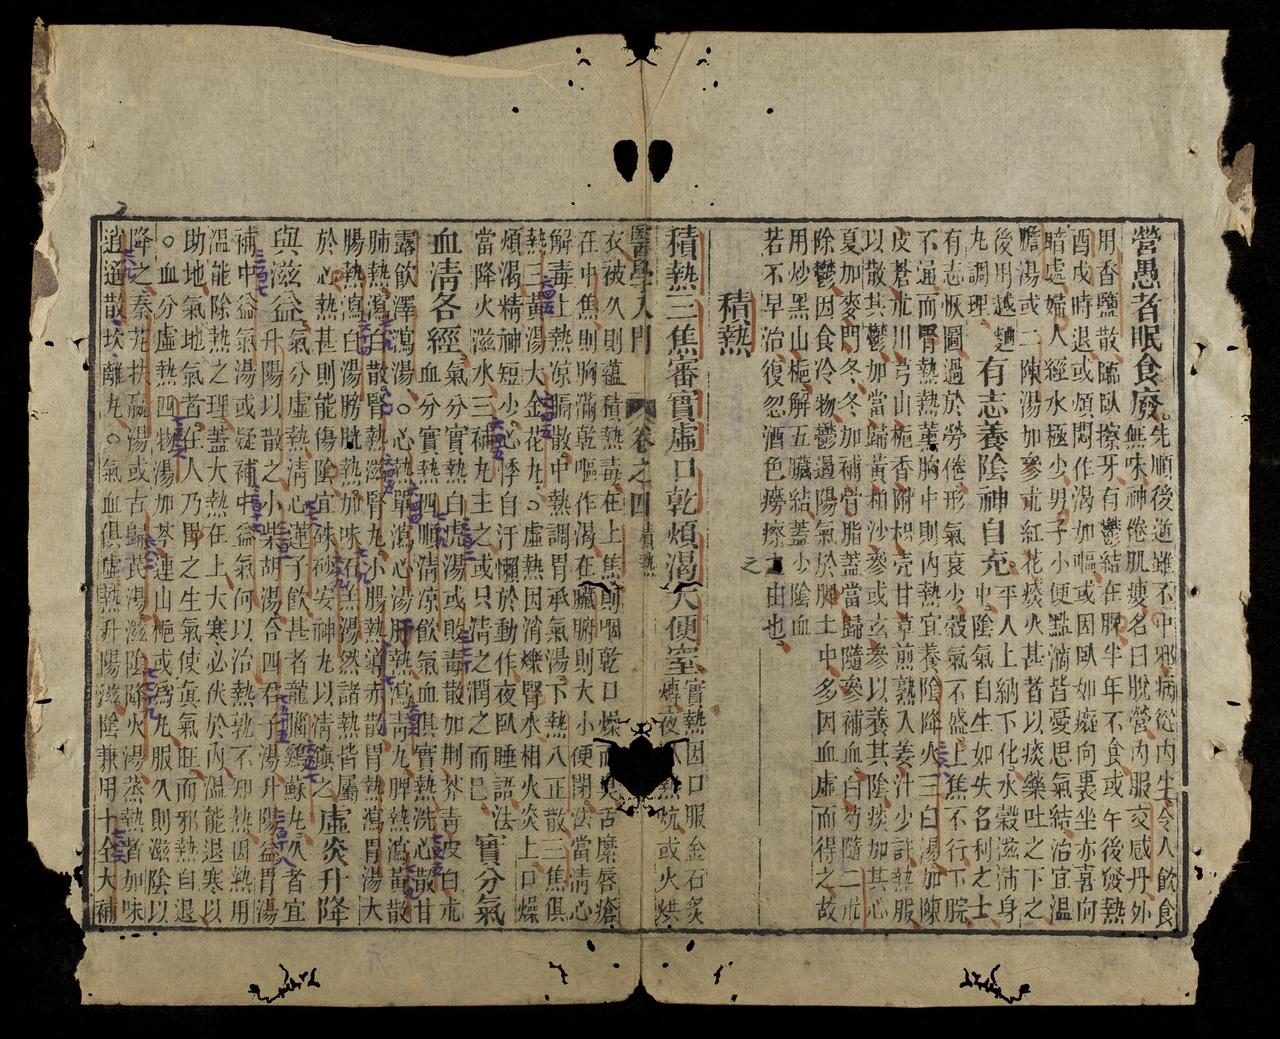 營愚者眠食廢先順後逆雖不中邪病從內生令人飲食
無味神倦肌瘦名曰脫營內服交感丹外
用香鹽散臨臥擦牙有鬱結在脾半年不食或午後發熱
酉戌時退或煩悶作渴加嘔或因臥如癡向裏坐亦喜向
暗處婦人經水極少男子小便點滴皆憂思氣結治宜溫
膽湯或二陳湯加參朮紅花痰火甚者以痰藥吐之下之
後用越麯丸調理
有志養陰神自充平人上納下化水穀滋沛身中陰氣自生如失名利之士
有志恢圖過於勞倦形氣衰少穀氣不盛上焦不行下脘
不通而胃熱熱薰胸中則內熱宜養陰降火二白湯加陳
皮蒼朮川芎山梔香附枳壳甘草煎熟入姜汁少許熱服
以散其鬱加當歸黃柏沙參或玄參以養其陰痰加其心
夏加麥門冬冬加補骨脂蓋當歸隨參補血白芍隨二朮
除鬱因食冷物鬱遏陽氣於脾土中多因血虛而得之故
用炒黑山梔解五臟結蓋少陰血
若不早治復忽酒色癆瘵之由也
之
積熱
積熱三焦審實虛口乾煩渴大便窒實熱因口服金石炙
煿夜臥熱炕或火烘
醫學入門 卷之四 積熱
衣被久則蘊積熱毒在上焦則咽乾口燥而舌糜唇瘡
在中焦則胸滿乾嘔作渴在臟腑則大小便閉法當清心
解毒上熱凉膈散中熱調胃承氣湯下熱八正散三焦俱
熱三黃湯大金花丸○虛熱因消爍腎水相火炎上口燥
煩渴精神短少心悸自汗懶於動作夜臥睡語法
當降火滋水三補丸主之或只清之潤之而已
實分氣
血清各經氣分實熱白虎湯或敗毒散加荆芥青皮白朮
血分實熱四順清涼飲氣血俱實熱洗心散甘
露飲澤瀉湯○心熱單瀉心湯肝熱瀉青丸脾熱瀉黃散
肺熱瀉白散腎熱滋腎丸小腸熱導赤散胃熱瀉胃湯大
腸熱瀉白湯膀胱熱加味石羔湯然諸熱皆屬
於心熱甚則能傷陰宜硃砂安神丸以清鎮之
虛炎升降
與滋益氣分虛熱清心蓮子飲甚者龍腦鷄蘇丸久者宜
升陽以散之小柴胡湯合四君子湯升陽益胃湯
補中益氣湯或疑補中益氣何以治熱孰不知熱因熱用
溫能除熱之理蓋大熱在上大寒必伏於內溫能退寒以
助地氣地氣者在人乃胃之生氣使眞氣旺而邪熱自退
○血分虛熱四物湯加芩連山梔或爲丸服久則滋陰以
降之秦艽扶羸湯或古歸芪湯滋陰降火湯蒸熱者加味
逍遙散坎離丸○氣血俱虛熱升陽滋陰兼用十全大補